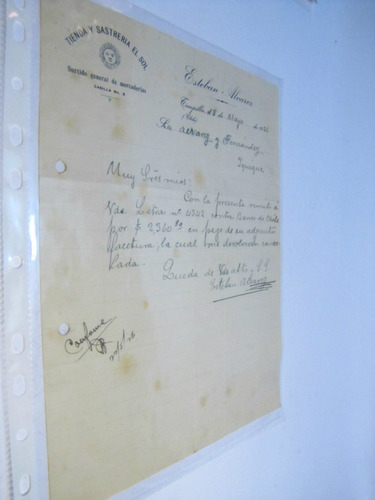 TIENDA Y SASTRERIA EL SOL
Surtido general de mercaderías
CASILLA No. 
Esteban Alvarez
de Mayo de
Alvarez y Fernández
Iquique
Muy Sres mios:
Con la presente remito a
Vds. Letra nº 4342 contra Banco de Chile
por $ 2,360 en pago de su adjunta
factura, la cual me devolverán cance-
lada.
Queda de Vds atto y S. S.
Esteban Alvarez
Conforme